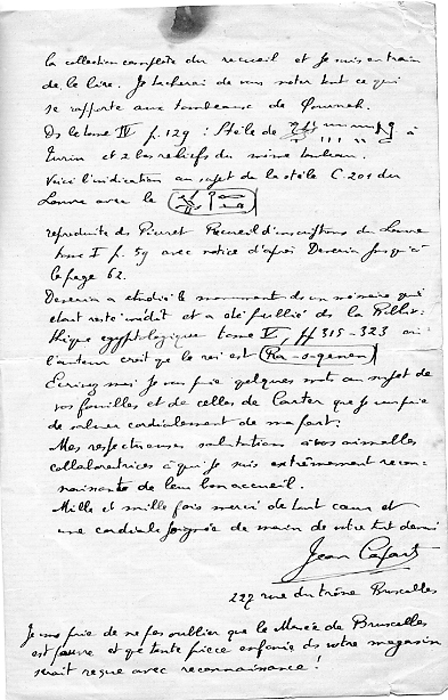 la collection complète du recueil et je suis en train
de le lire. Je tacherai de vous noter tout ce qui
se rapporte aux tombeaux de Gournah.
Ds le tome IV p. 129 : Stèle de à
Turin et 2 bas reliefs du même tombeau.
Voici l'indication au sujet de la stèle C. 201 du
Louvre avec le
reproduite ds Pierret Recueil d'inscriptions du Louvre
tome I p. 59 avec notice d'après Deveria jusqu'à
la page 62.
Deveria a étudié le monument ds un mémoire qui
était resté inédit et a été publié ds la Biblio-
thèque egyptologique tome V, pp 315-323 où
l'auteur croit que le roi est
Ecrivez moi je vous prie quelques mots au sujet de
vos fouilles et de celles de Carter que je vous prie
de saluer cordialement de ma part.
Mes respectueuses salutations à vos aimables
collaboratrices à qui je suis extrêmement recon-
naissant de leur bon accueil.
Mille et mille fois merci de tout cœur et
une cordiale poignée de main de votre tout dévoué
Jean Capart
227 rue du trône Bruxelles
Je vous prie de ne pas oublier que le Musée de Bruxelles
est pauvre et que toute pièce enfouie ds votre magasin
serait reçue avec reconnaissance !